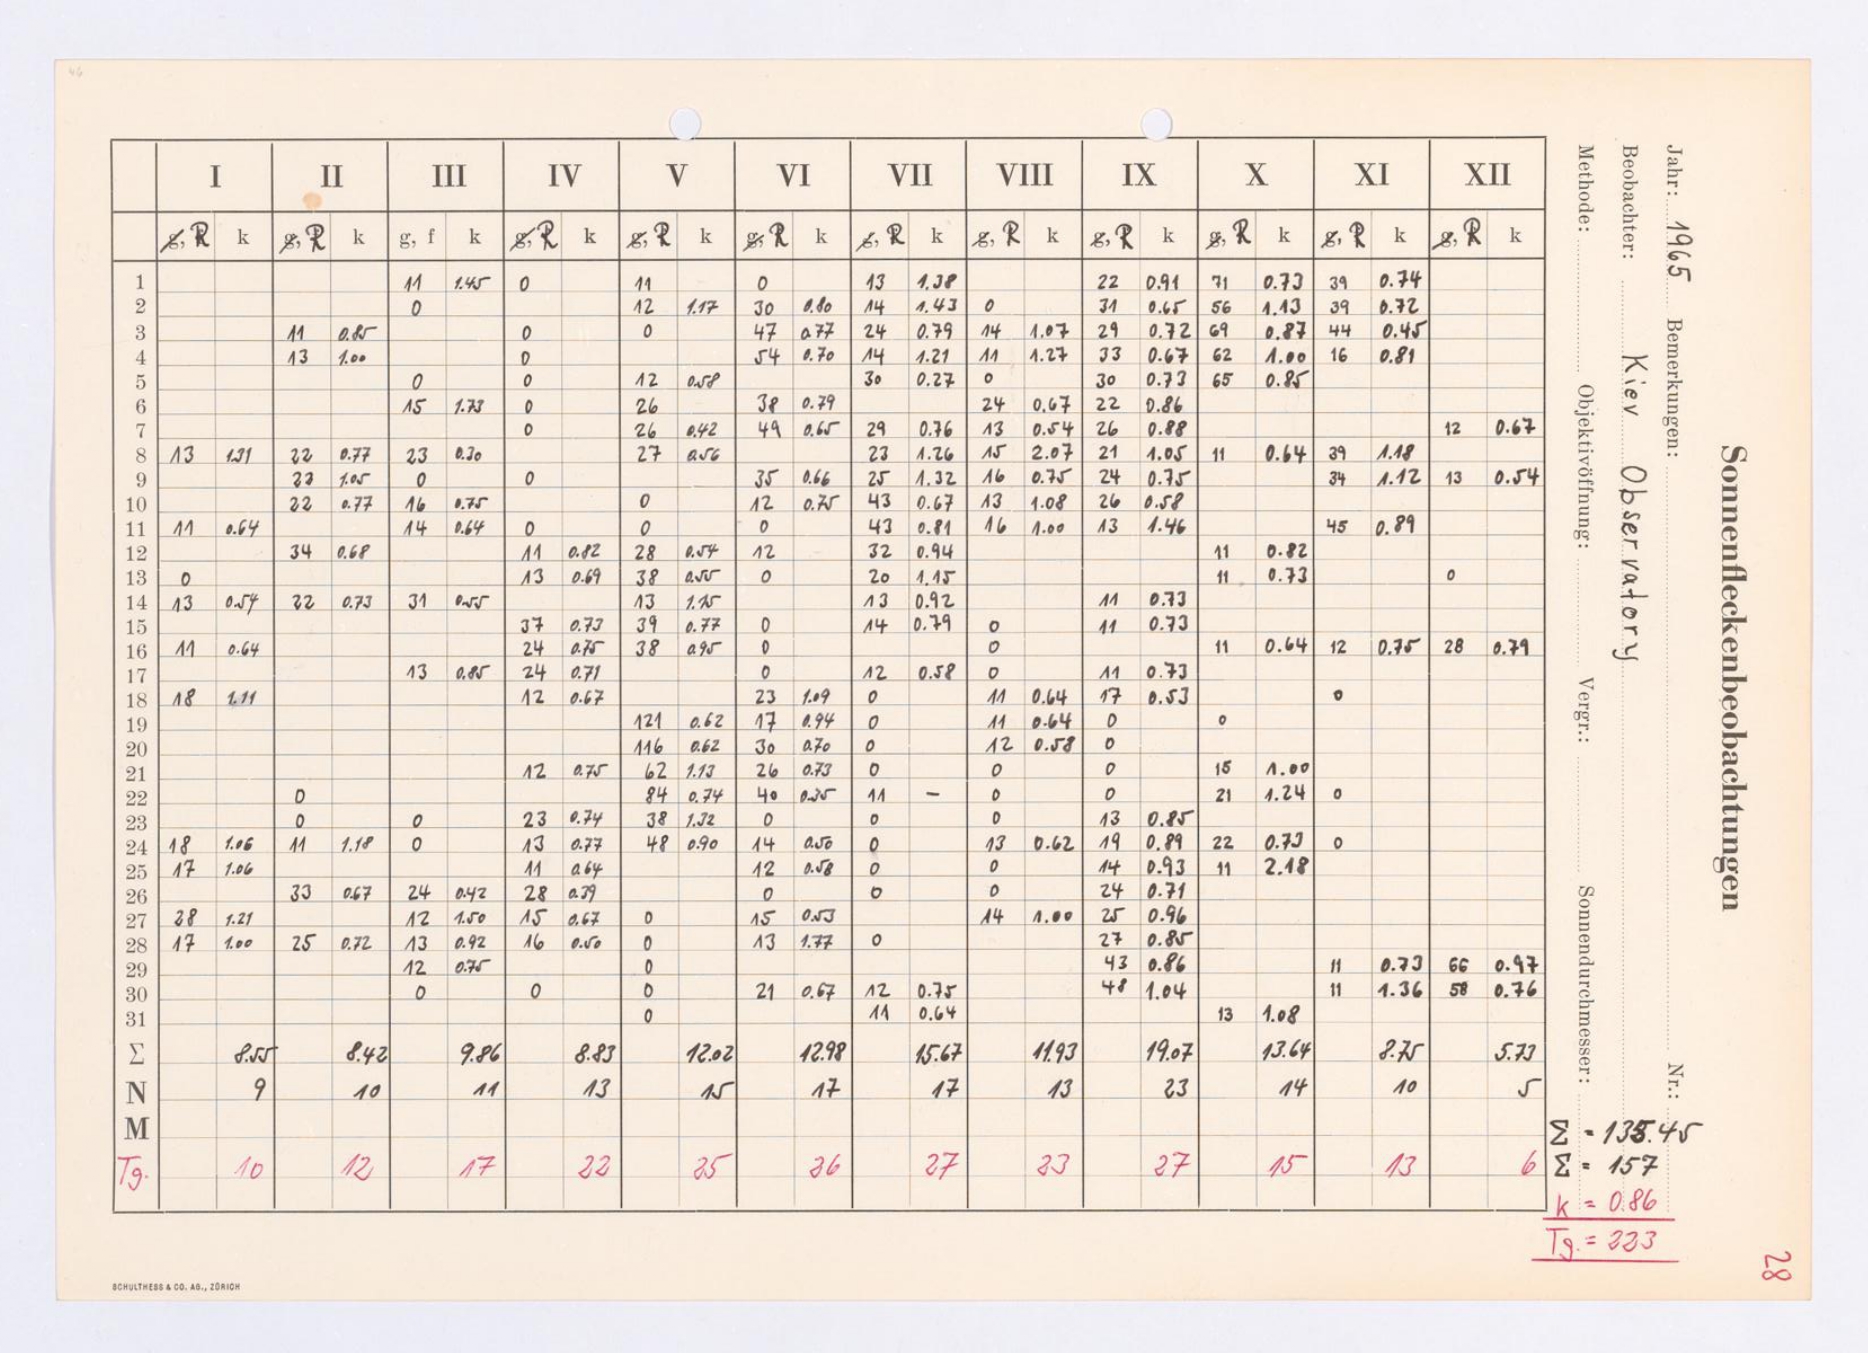 46
I II III IV V VI VII VIII IX X XI XII
g, R k g, R k g, f k g, R k g, R k g, R k g, R k g, R k g, R k g, R k g, R k g, R k
1 11 1.45 0 11 0 13 1.38 22 0.91 71 0.73 39 0.74
2 0 12 1.17 30 0.80 14 1.43 0 31 0.65 56 1.13 39 0.72
3 11 0.85 0 0 47 0.77 24 0.79 14 1.07 29 0.72 69 0.87 44 0.45
4 13 1.00 0 54 0.70 14 1.21 11 1.27 33 0.67 62 1.00 16 0.81
5 0 0 12 0.58 30 0.27 0 30 0.73 65 0.85
6 15 1.73 0 26 38 0.79 24 0.67 22 0.86
7 0 26 0.42 49 0.65 29 0.76 13 0.54 26 0.88 12 0.67
8 13 1.31 22 0.77 23 0.30 27 0.56 23 1.26 15 2.07 21 1.05 11 0.64 39 1.18
9 23 1.05 0 0 35 0.66 25 1.32 16 0.75 24 0.75 34 1.12 13 0.54
10 22 0.77 16 0.75 0 12 0.75 43 0.67 13 1.08 26 0.58
11 11 0.64 14 0.64 0 0 0 43 0.81 16 1.00 13 1.46 45 0.89
12 34 0.68 11 0.82 28 0.54 12 32 0.94 11 0.82
13 0 13 0.69 38 0.55 0 20 1.15 11 0.73 0
14 13 0.54 22 0.73 31 0.55 13 1.15 13 0.92 11 0.73
15 37 0.73 39 0.77 0 14 0.79 0 11 0.73
16 11 0.64 24 0.75 38 0.95 0 0 11 0.64 12 0.75 28 0.79
17 13 0.85 24 0.71 0 12 0.58 0 11 0.73
18 18 1.11 12 0.67 23 1.09 0 11 0.64 17 0.53 0
19 121 0.62 17 0.94 0 11 0.64 0 0
20 116 0.62 30 0.70 0 12 0.58 0
21 12 0.75 62 1.13 26 0.73 0 0 0 15 1.00
22 0 84 0.74 40 0.35 11 – 0 0 21 1.24 0
23 0 0 23 0.74 38 1.32 0 0 0 13 0.85
24 18 1.06 11 1.18 0 13 0.77 48 0.90 14 0.50 0 13 0.62 19 0.89 22 0.73 0
25 17 1.06 11 0.64 12 0.58 0 0 14 0.93 11 2.18
26 33 0.67 24 0.42 28 0.39 0 0 0 24 0.71
27 28 1.21 12 1.50 15 0.67 0 15 0.53 14 1.00 25 0.96
28 17 1.00 25 0.72 13 0.92 16 0.50 0 13 1.77 0 27 0.85
29 12 0.75 0 43 0.86 11 0.73 66 0.97
30 0 0 0 21 0.67 12 0.75 48 1.04 11 1.36 58 0.76
31 0 11 0.64 13 1.08
Σ 8.55 8.42 9.86 8.83 12.02 12.98 15.67 11.93 19.07 13.64 8.75 5.73
N 9 10 11 13 15 17 17 13 23 14 10 5
M
Tg. 10 12 17 22 25 26 27 23 27 15 13 6
Sonnenfleckenbeobachtungen
Jahr: 1965 Bemerkungen: Nr.:
Beobachter: Kiev Observatory
Methode: Objektivöffnung: Vergr.: Sonnendurchmesser:
Σ = 135.45
Σ = 157
k = 0.86
Tg. = 223
28
SCHULTHESS & CO. AG., ZÜRICH